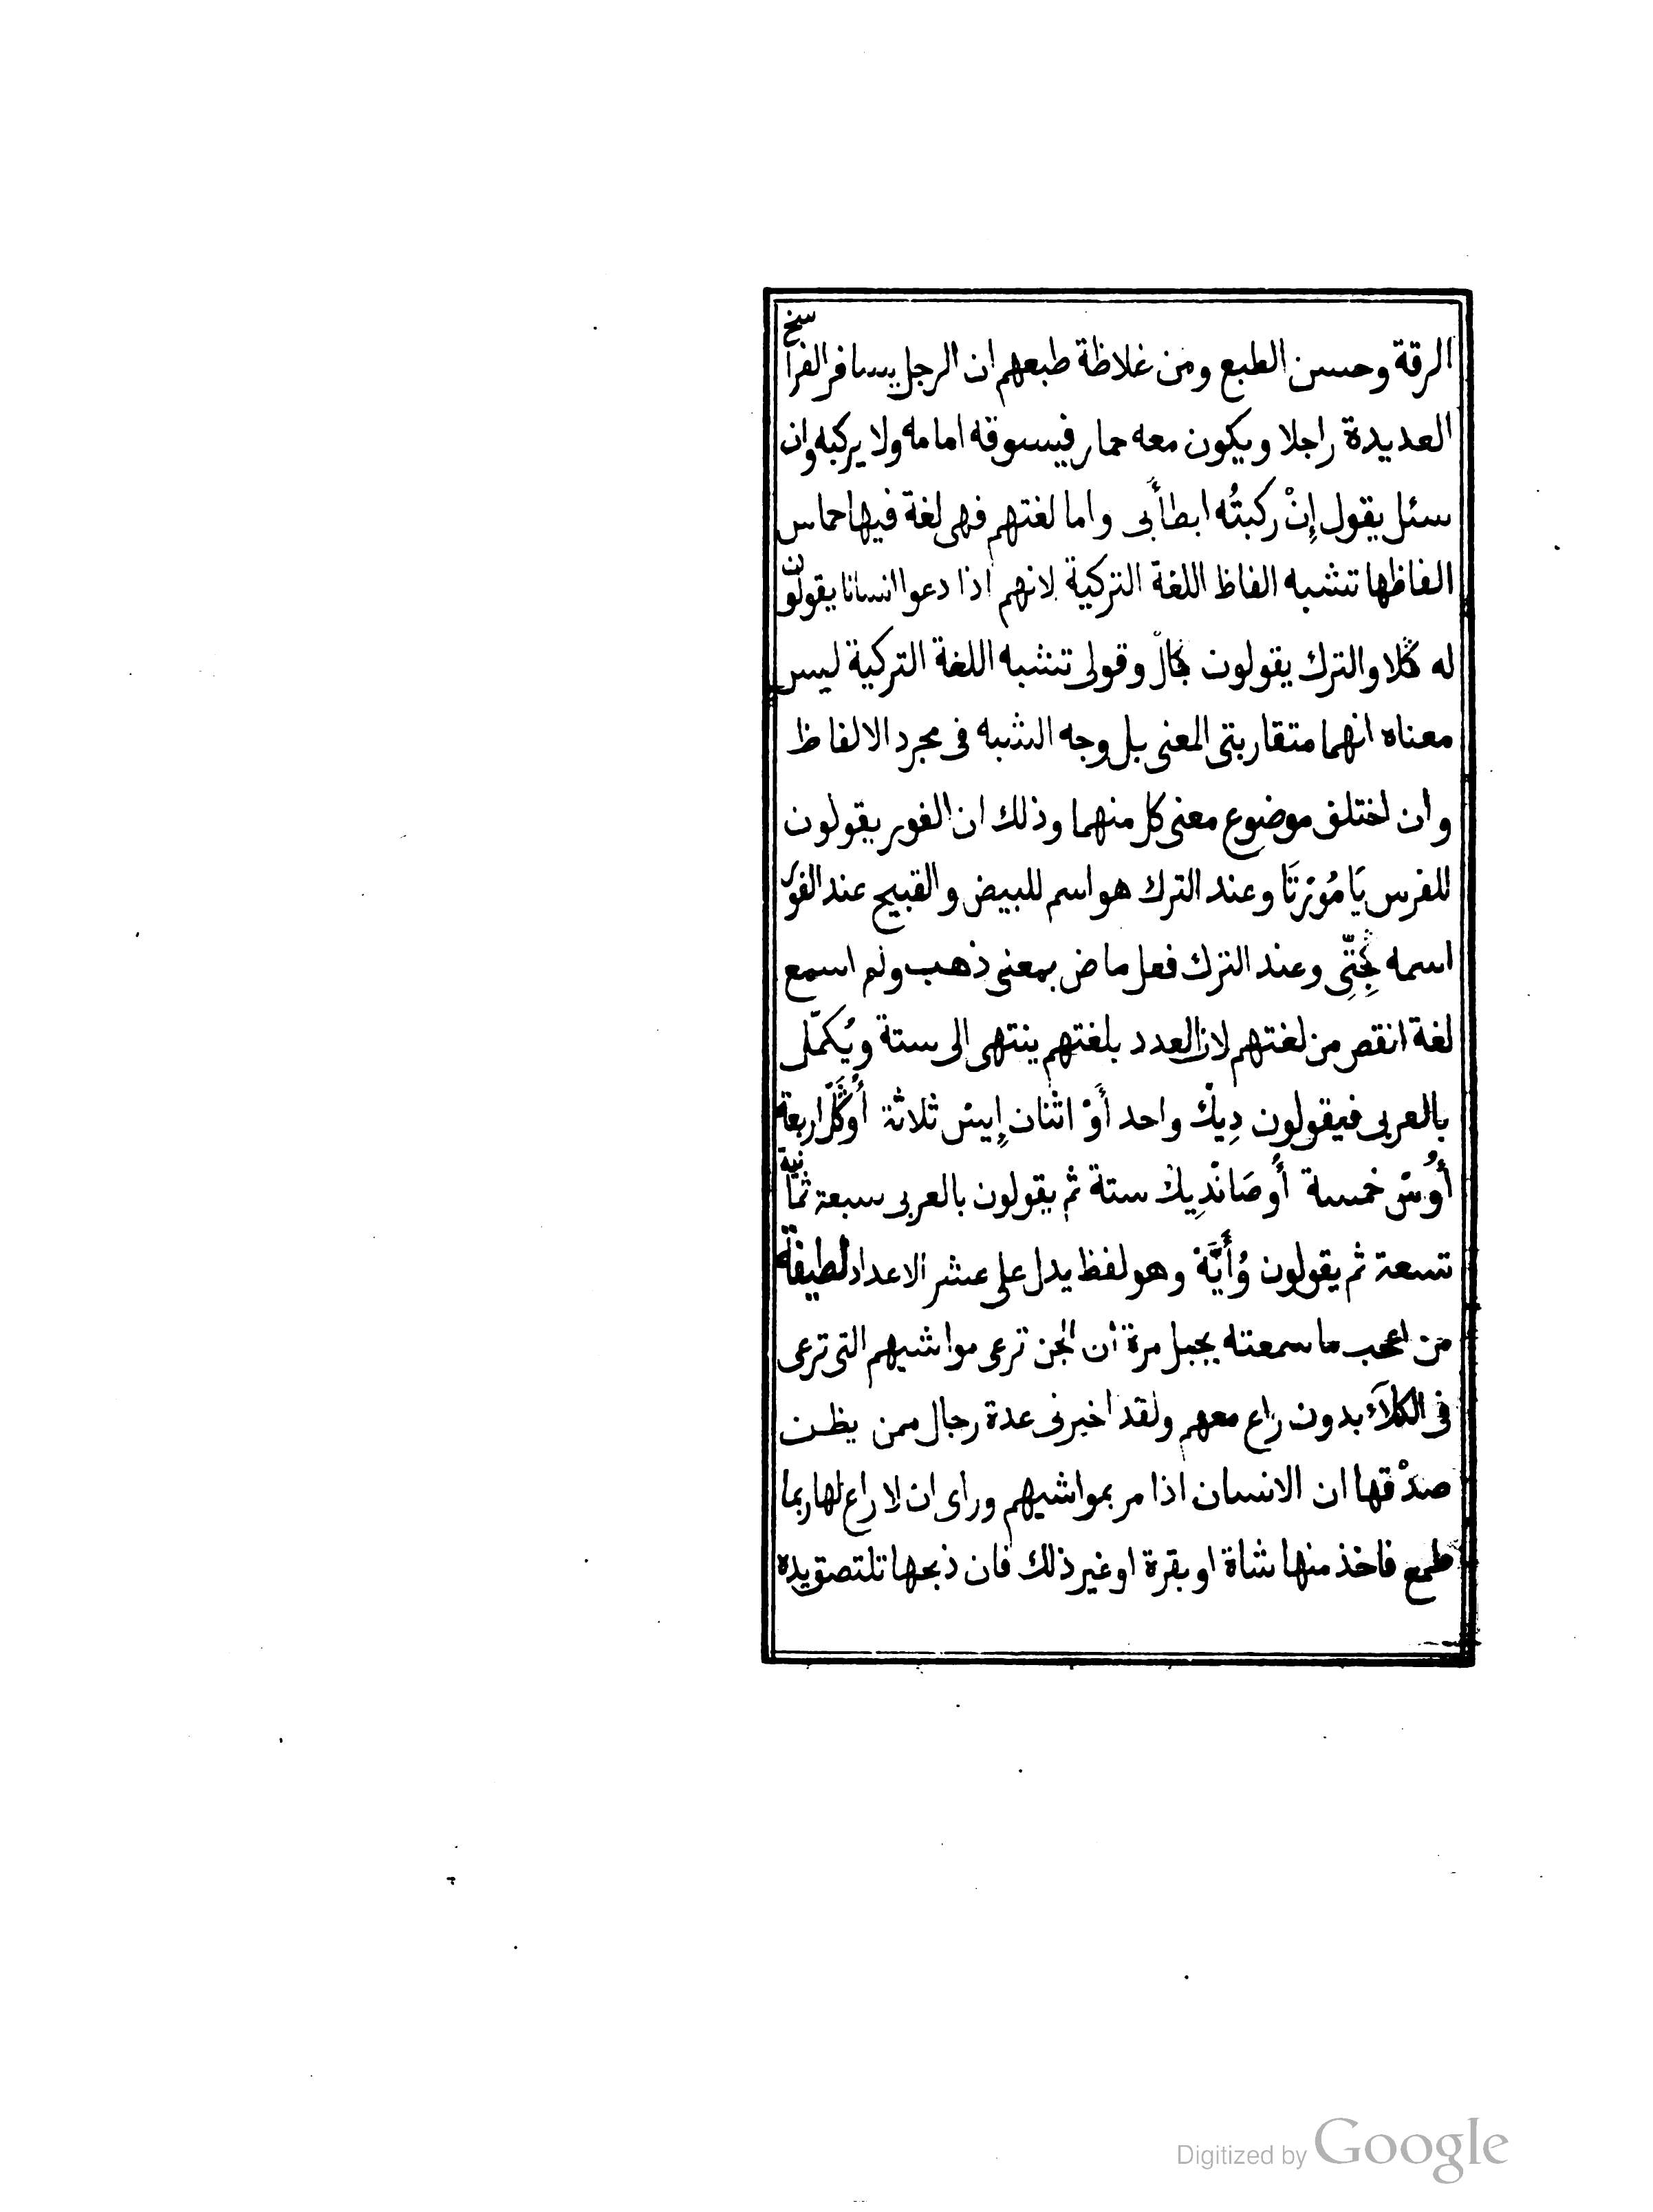 الرقة وحسن الطبع ومن غلاظة طبعهم ان الرجل يسافر الفراسخ
العديدة راجلا ويكون معه حمار فيسوقه امامه ولا يركبه وان
سئل يقول إِنْ ركبتُه ابطأَبى واما لغتهم فهى لغة فيها حماس
الفاظها تشبه الفاظ اللغة التركية لانهم اذا دعوا انسانا يقولون
له كلا والترك يقولون كال وقولى تشبه اللغة التركية ليس
معناه انهما متقاربتى المعنى بل وجه الشبه فى مجرد الالفاظ
وان اختلف موضوع معنى كل منهما وذلك ان الفور يقولون
للفرس يَا مُوْرتَا وعند الترك هو اسم للبيض والقبيح عند الفور
اسمه كِتِّى وعند الترك فعل ماض بمعنى ذهب ولم اسمع
لغة انقص من لغتهم لان العدد بلغتهم ينتهى الى ستة ويُكمّل
بالعربى فيقولون دِيكْ واحد أَوْ اثنان إِيسْ ثلاثة أُوكَلّ اربعة
أُوسْ خمسة أُوصَانْدِيكْ ستة ثم يقولون بالعربى سبعة ثمانية
تسعة ثم يقولون وُأَيَّهْ وهو لفظ يدل على عشر الاعداد لطيفة
من اعجب ما سمعته بجبل مرة ان الجن ترعى مواشيهم التى ترعى
فى الكلآء بدون راع معهم ولقد اخبرنى عدة رجال ممن يظن
صدْقها ان الانسان اذا مر بمواشيهم وراى ان لا راع لها ربما
طمع فاخذ منها شاة او بقرة او غير ذلك فان ذبحها تلتصق يده
Digitized by Google